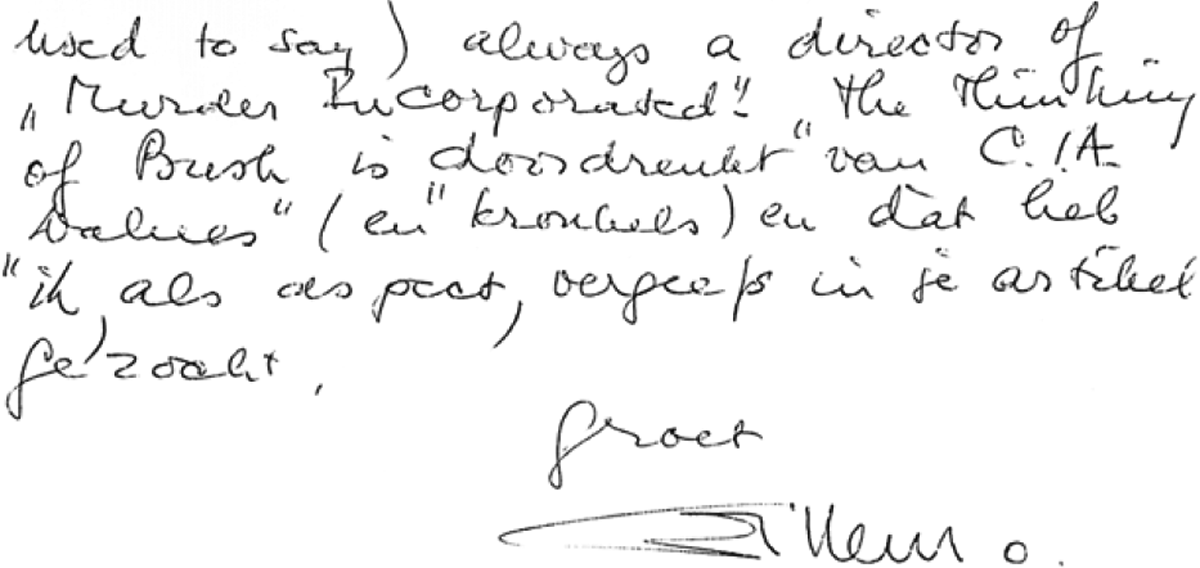 used to say) always a director of
„Murder Incorporated". The thinking
of Bush is „doordrenkt" van C.I.A.
values" (en "kronkels) en dàt heb
"ik, als aspect, vergeefs in je artikel
gezocht.
Groet
Willem O.